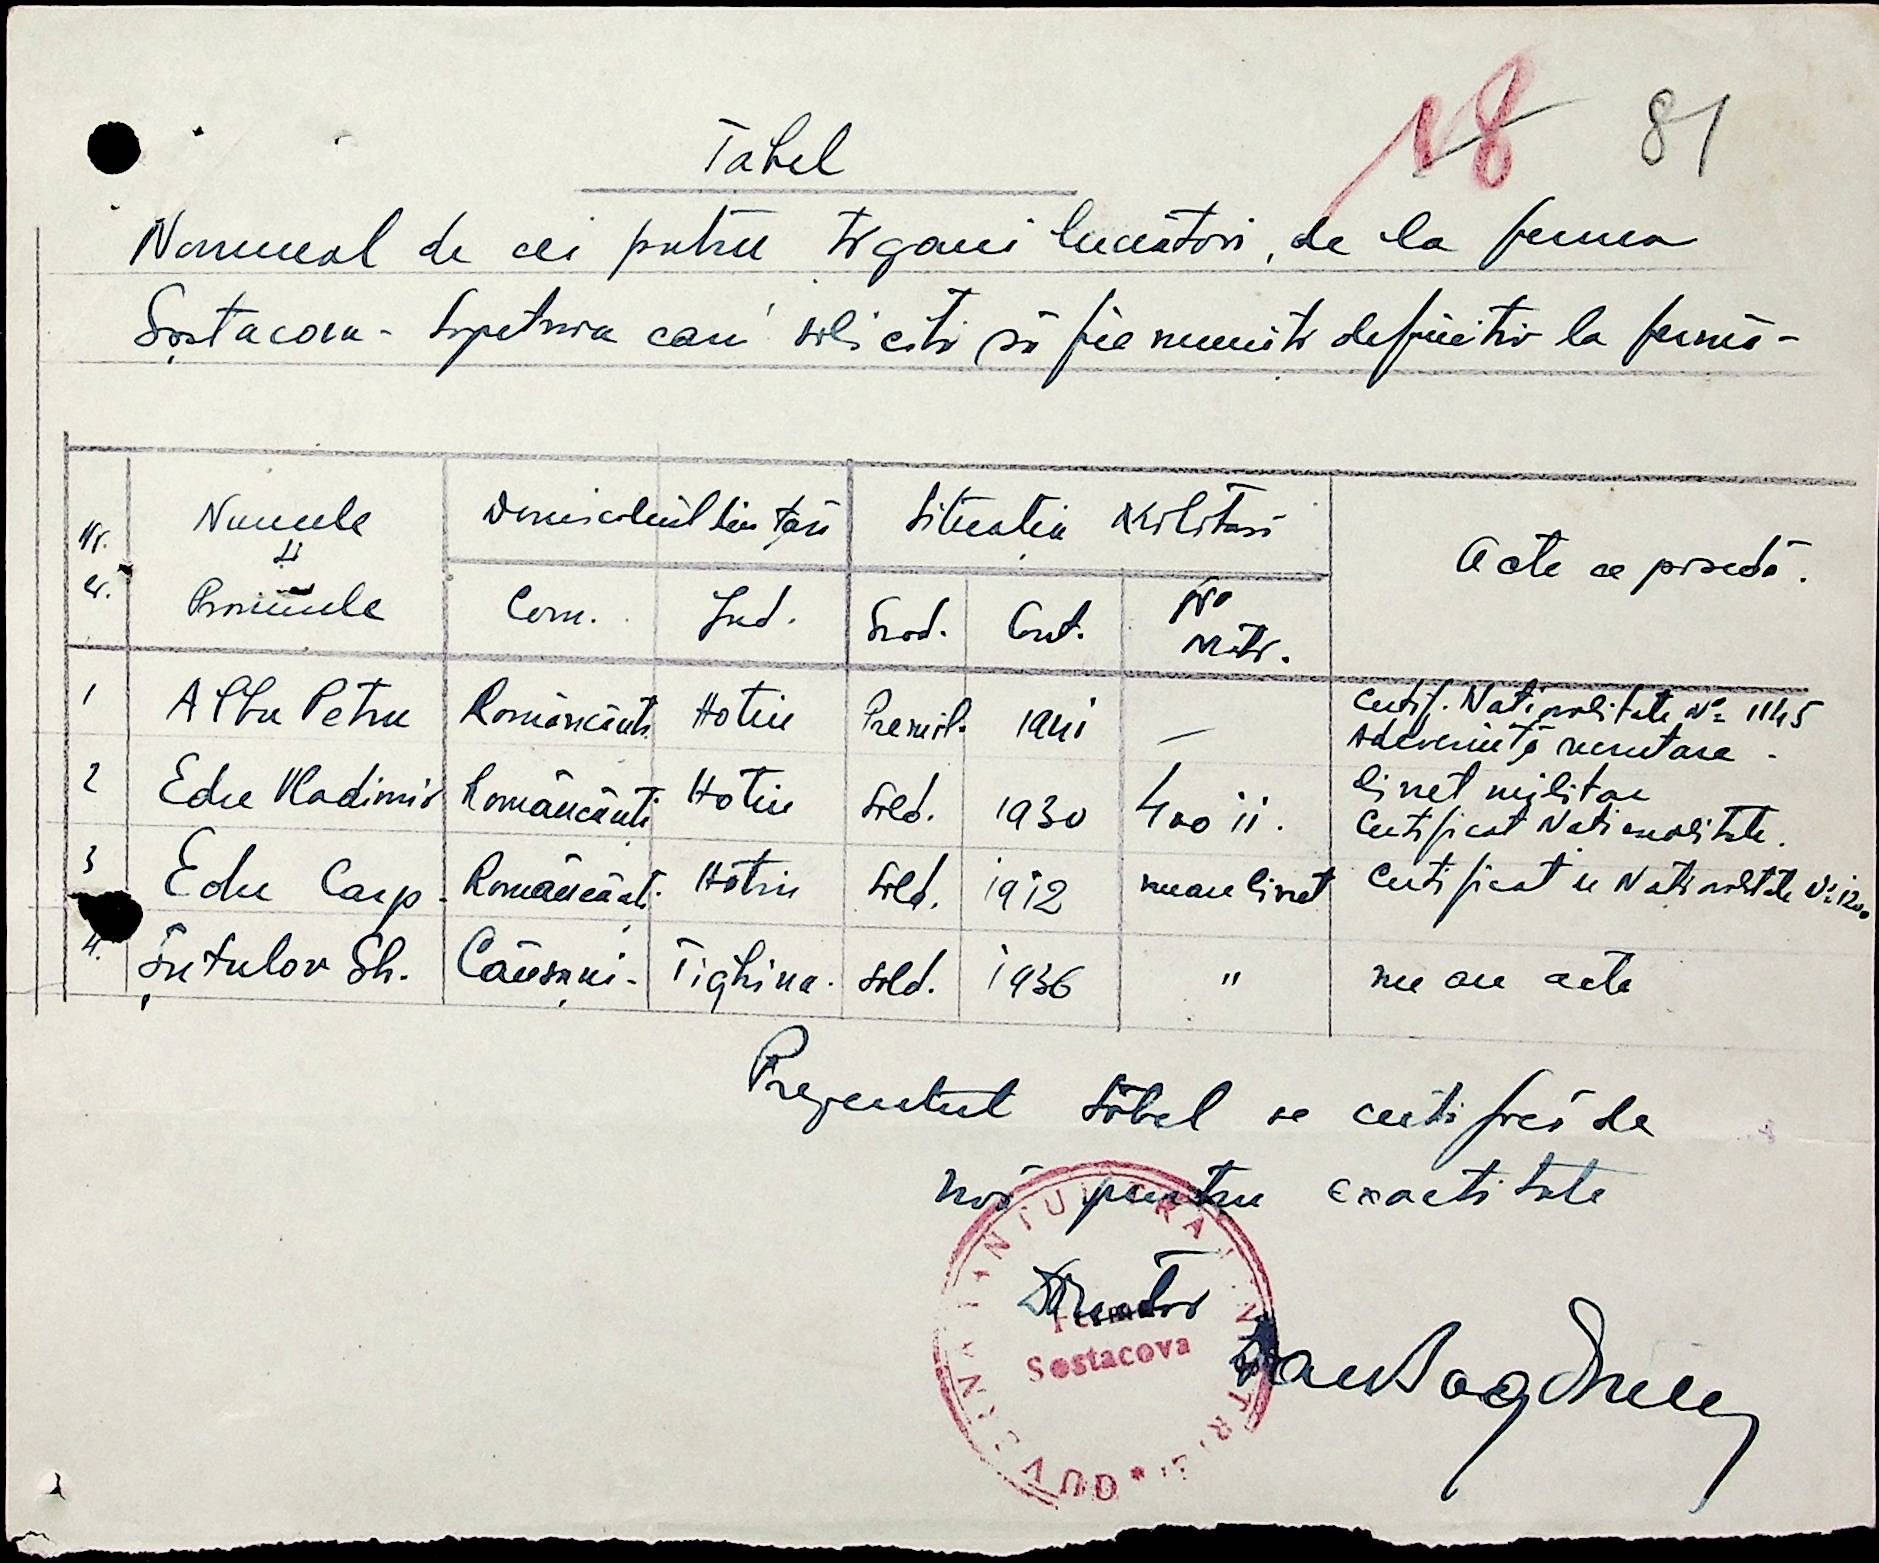 18 81
Tabel
Nominal de cei patru țigani lucrători, de la ferma
Șostacova - cari solicită să fie numiți definitiv la fermă -
Nr. cr. | Numele și Pronumele | Domiciliul din țară | Situația Militară | Acte ce posedă.
Com. | Jud. | Grad. | Cont. | No Matr.
1 | Albu Petru | Româncăuți | Hotin | Premil. | 1941 | — | Certif. Naționalitate No 1145
adeverință
2 | Edu Vladimir | Româncăuți | Hotin | Sold. | 1930 | 40011. | livret militar
Certificat Naționalitate.
3 | Edu Carp. | Româncăuți. | Hotin | Sold. | 1912 | nu are livret | Certificat de Naționalitate No 120
4. | Șutulov Gh. | Căușani. | Tighina. | Sold. | 1936 | " | nu are acte
Prezentul tabel se certifică de
noi pentru exactitate
Director
Ferma
Sostacova
GUVERNĂMÂNTUL TRANSNISTRIEI *